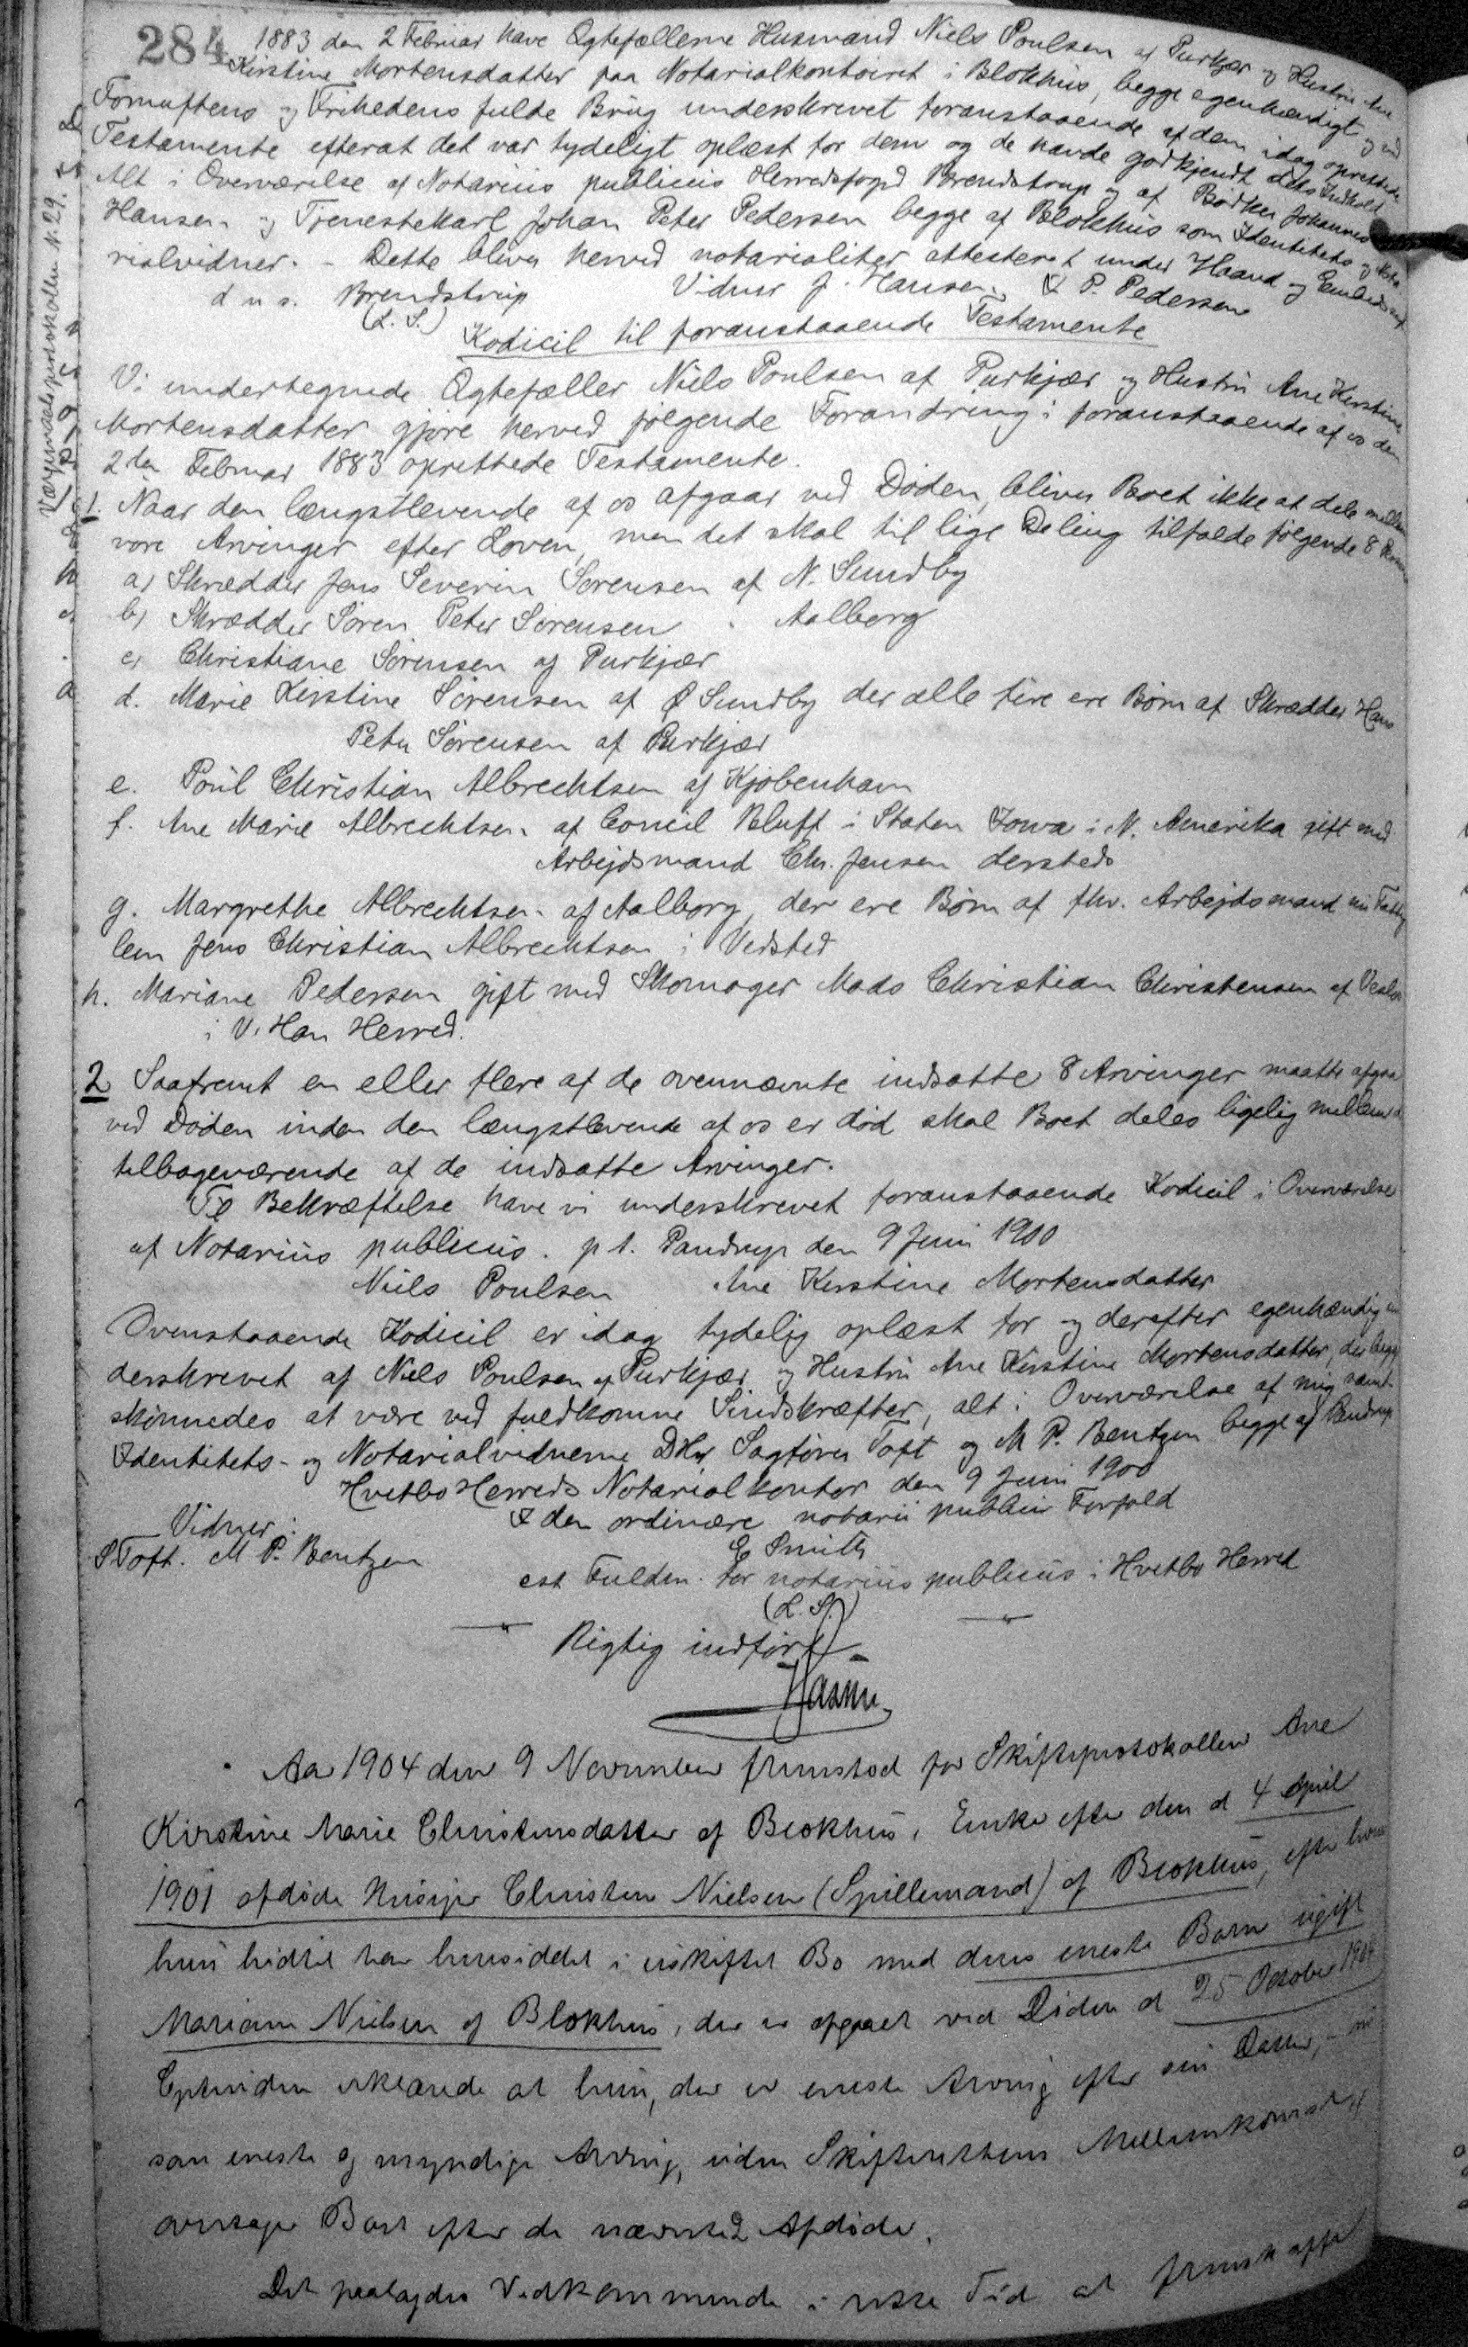 284
1883 den 2 Februar have Ægtefællerne Husmand Niels Poulsen af Purkjær og Hustru Ane
Kirstine Mortensdatter paa Notarialkontoiret i Blokhus, begge egenhændigt og ved
Fornuftens og Frihedens fulde Brug underskrevet foranstaaende af dem idag oprettede
Testamente efterat det var tydeligt oplæst for dem og de havde godkjendt dets Indhold
Alt i Overværelse af Notarius publicus Herredsfoged Brendstrup og af Bødker Johannes
Hansen og Tjenestekarl Johan Peter Pedersen begge af Blokhus som Identitets og Nota-
rialvidner. - Dette bliver herved notarialiter attesteret under Haand og Embedssegl
d u s. Brendstrup Vidner J. Hansen J. P. Pedersen
(L. S.)
Kodicil til foranstaaende Testamente
Vi undertegnede Ægtefæller Niels Poulsen af Purkjær og Hustru Ane Kirstine
Mortensdatter gjøre herved følgende Forandring i foranstaaende af os den
2den Februar 1883 oprettede Testamente.
1. Naar den længstlevende af os afgaar ved Døden, bliver Boet ikke at dele mellem
vore Arvinger efter Loven, men det skal til lige Deling tilfalde følgende 8
a) Skrædder Jens Severin Sørensen af N. Sundby
b) Skrædder Søren Peter Sørensen " Aalborg
c) Christiane Sørensen af Purkjær
d. Marie Kirstine Sørensen af Ø Sundby der alle fire ere Børn af Skrædder Hans
Peter Sørensen af Purkjær
e. Poul Christian Albrechtsen af Kjøbenhavn
f. Ane Marie Albrechtsen af Concil Bluff i Staten Iowa i N. Amerika gift med
Arbejdsmand Chr. Jensen dersteds
g. Margrethe Albrechtsen af Aalborg, der ere Børn af fhv. Arbejdsmand nu Fattig
lem Jens Christian Albrechtsen i Vedsted
h. Mariane Pedersen gift med Skomager Mads Christian Christensen af
i V. Han Herred.
2 Saafremt en eller flere af de ovennævnte indsatte 8 Arvinger maatte afgaa
ved Døden inden den længstlevende af os er død skal Boet deles ligelig mellem de
tilbageværende af de indsatte Arvinger.
Til Bekræftelse have vi underskrevet foranstaaende Kodicil i Overværelse
af Notarius publicus. p t. Pandrup den 9 Juni 1900
Niels Poulsen Ane Kirstine Mortensdatter
Ovenstaaende Kodicil er idag tydelig oplæst for og derefter egenhændig un
derskrevet af Niels Poulsen af Purkjær og Hustru Ane Kirstine Mortensdatter, der begge
skønnedes at være ved fuldkomne Sindskræfter, alt i Overværelse af mig samt
Identitets- og Notarialvidnerne DHr Sagfører Toft og M P. Bentzen begge af Pandrup
Hvetbo Herreds Notarialkontor den 9 Juni 1900
I den ordinære notarii publici Forfald
Vidner:
S Toft. M P. Bentzen
E Smith
cst Fuldm. for notarius publicus i Hvetbo Herred
(L. S.)
Rigtig indført
Aar 1904 den 9 November fremstod for Skifteprotokollen Ane
Kirstine Marie Christensdatter af Blokhus, Enke efter den d 4 April
1901 afdøde Husejer Christen Nielsen (Spillemand) af Blokhus, efter hvem
hun hidtil har hensiddet i uskiftet Bo med deres eneste Barn ugift
Mariane Nielsen af Blokhus, der er afgaaet ved Døden d 25 October 1904
Comparentinden erklærede at hun, der er eneste Arving efter sin Datter,
som eneste og myndige Arving, uden Skifterettens Mellemkomst,
overtager Boet efter de nævnte 2 Afdøde.
Det paalagdes Vedkommende i rette Tid at fremskaffe